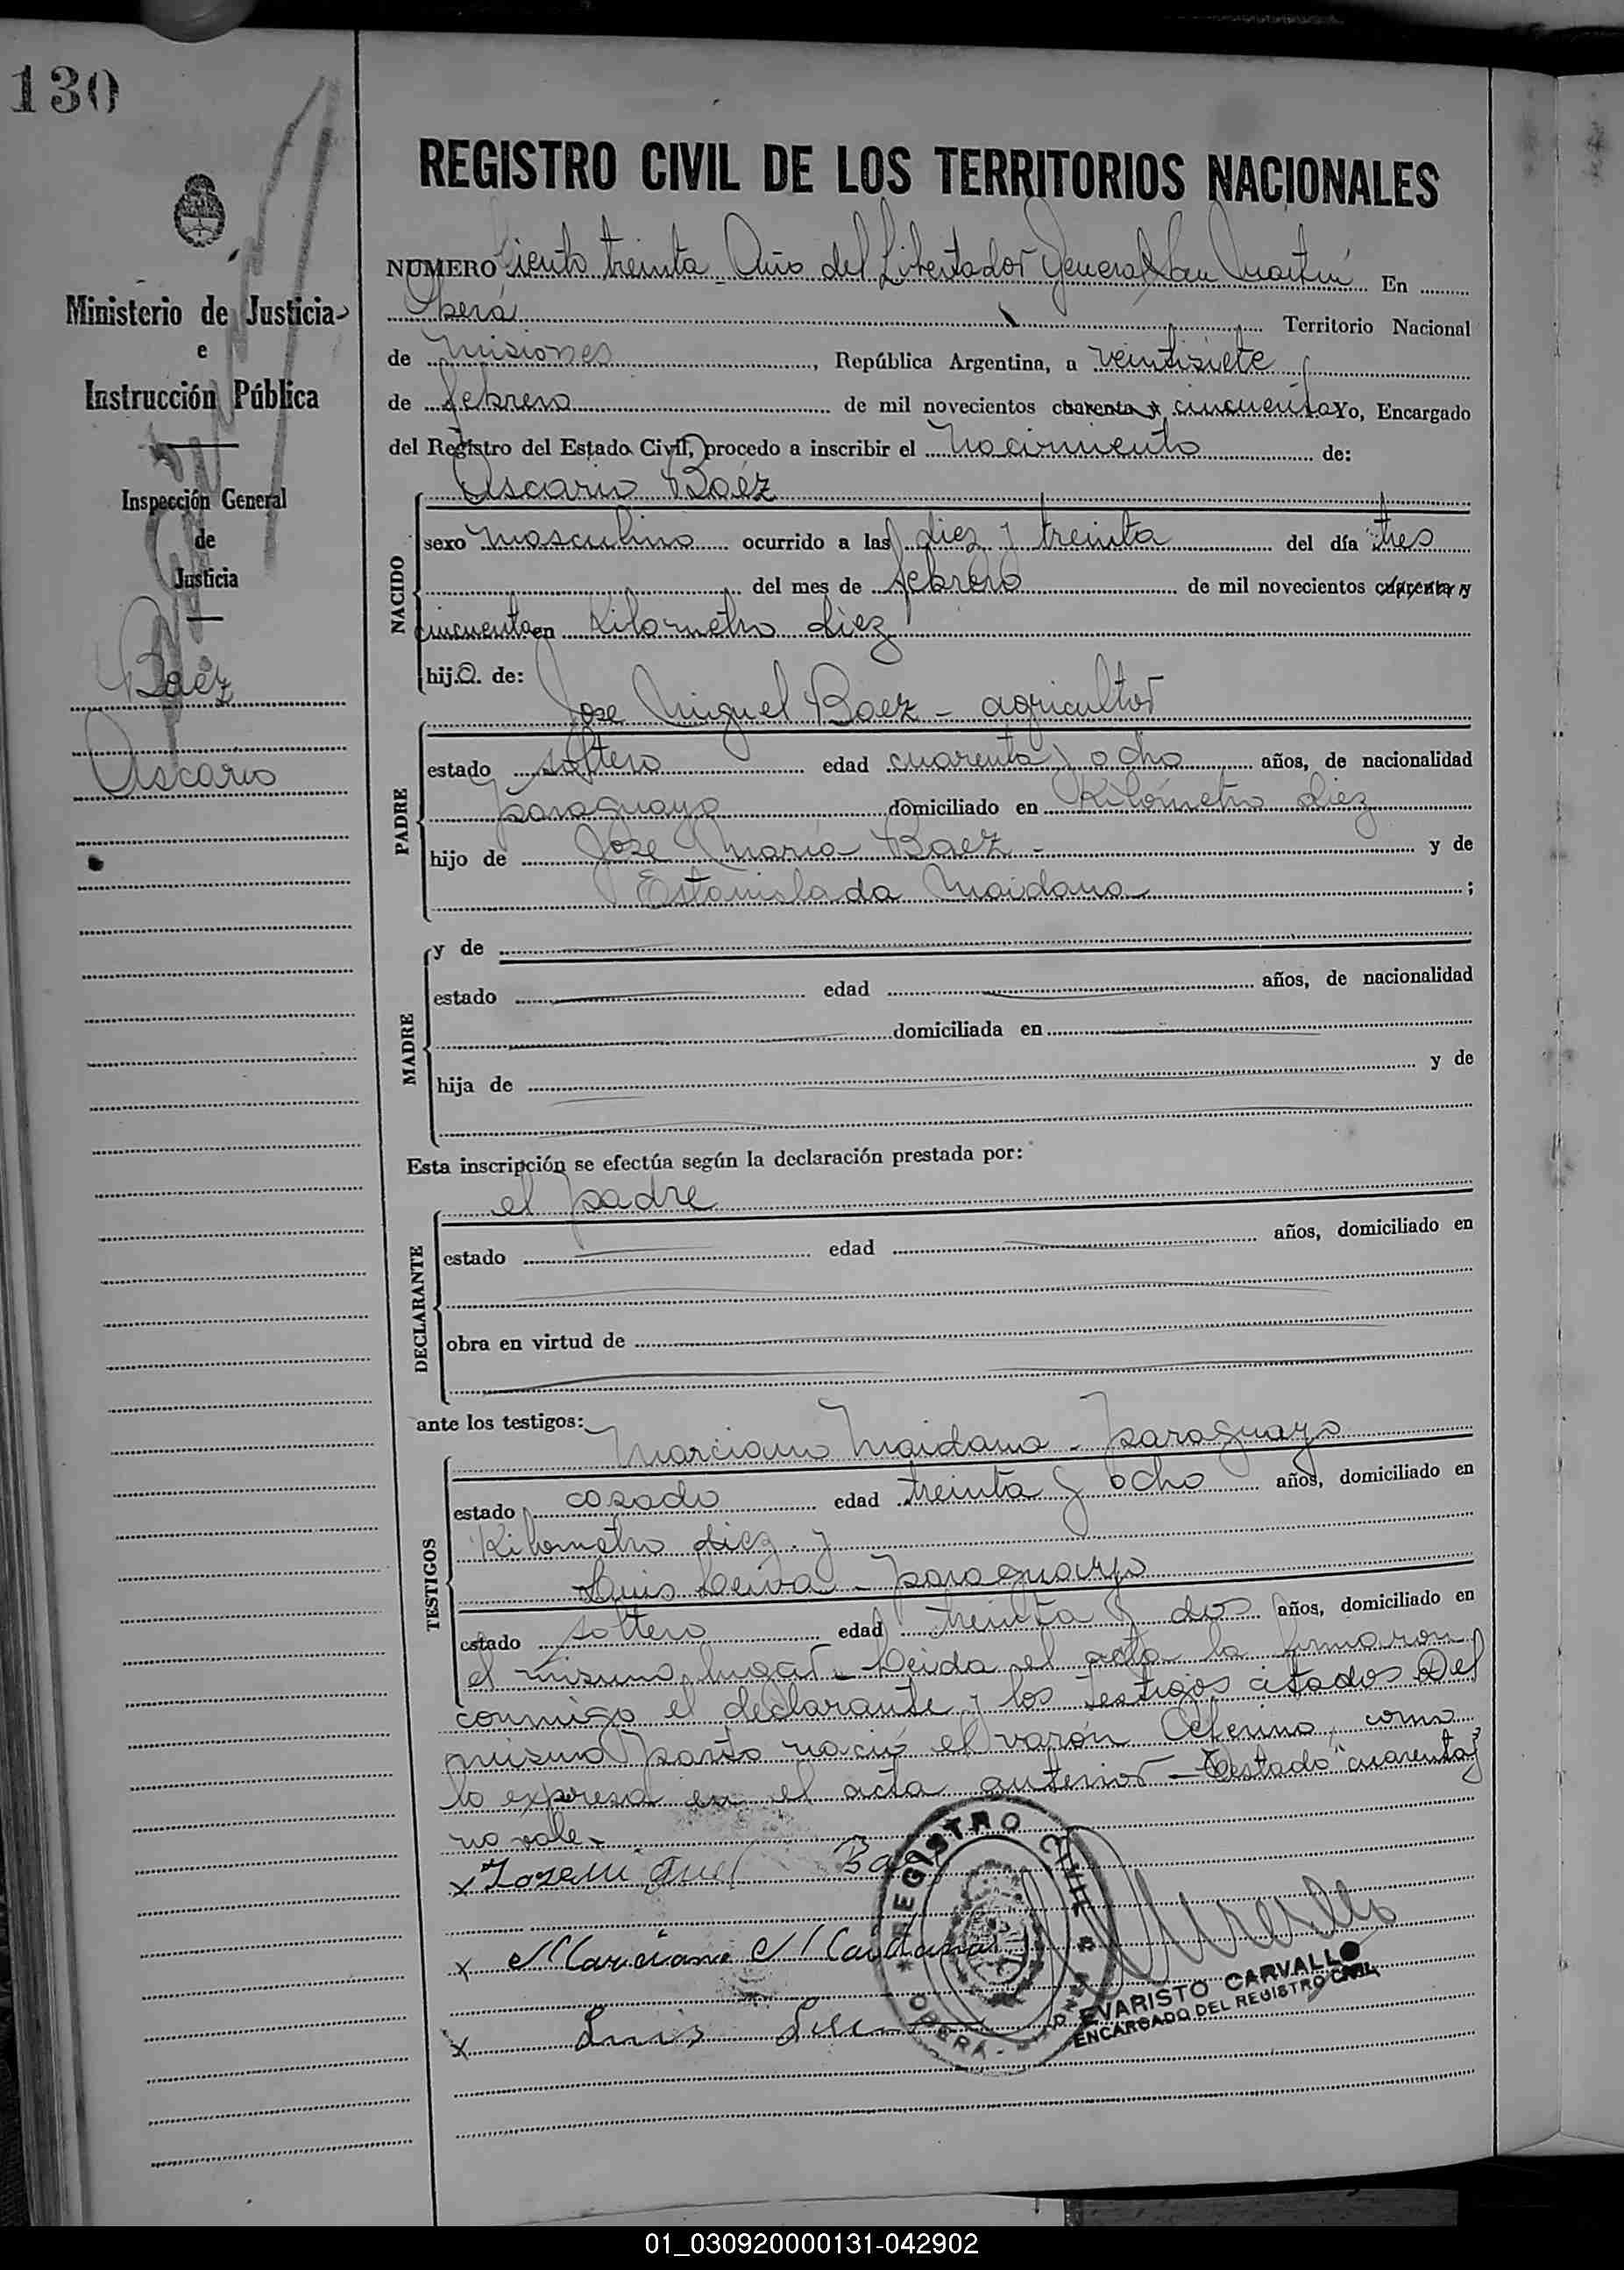 130
REGISTRO CIVIL DE LOS TERRITORIOS NACIONALES
Ministerio de Justicia
e
Instrucción Pública
Inspección General
de
Justicia
Baéz
Ascario
NUMERO Ciento treinta - Año del Libertador General San Martín En
Oberá Territorio Nacional
de Misiones, República Argentina, a veintisiete
de febrero de mil novecientos cuarenta y cincuenta Yo, Encargado
del Registro del Estado Civil, procedo a inscribir el nacimiento de:
Ascario Baéz
NACIDO
sexo masculino ocurrido a las diez y treinta del día tres
del mes de febrero de mil novecientos cuarenta y
cincuenta en Kilometro diez
hijo de:
Jose Miguel Baez - agricultor
PADRE
estado soltero edad cuarenta y ocho años, de nacionalidad
paraguaya domiciliado en Kilómetro diez
hijo de Jose Maria Baez - y de
Estanislada Maidana ;
MADRE
y de
estado edad años, de nacionalidad
domiciliada en
hija de y de
Esta inscripción se efectúa según la declaración prestada por:
el padre
DECLARANTE
estado edad años, domiciliado en
obra en virtud de
ante los testigos:
Marciano Maidana - paraguayo
TESTIGOS
estado casado edad treinta y ocho años, domiciliado en
Kilometro diez. y
Luis Leiva - paraguayo
estado soltero edad treinta y dos años, domiciliado en
el mismo lugar - Leida el acta la firmaron
conmigo el declarante y los testigos citados Del
mismo parto nació el varón Ceferino, como
lo expresa en el acta anterior - Testado "cuarenta y"
no vale -
x Jose Miguel Baez
x Marciano Maidana
x Luis
REGISTRO CIVIL
OBERA
EVARISTO CARVALLO
ENCARGADO DEL REGISTRO CIVIL
01_030920000131-042902